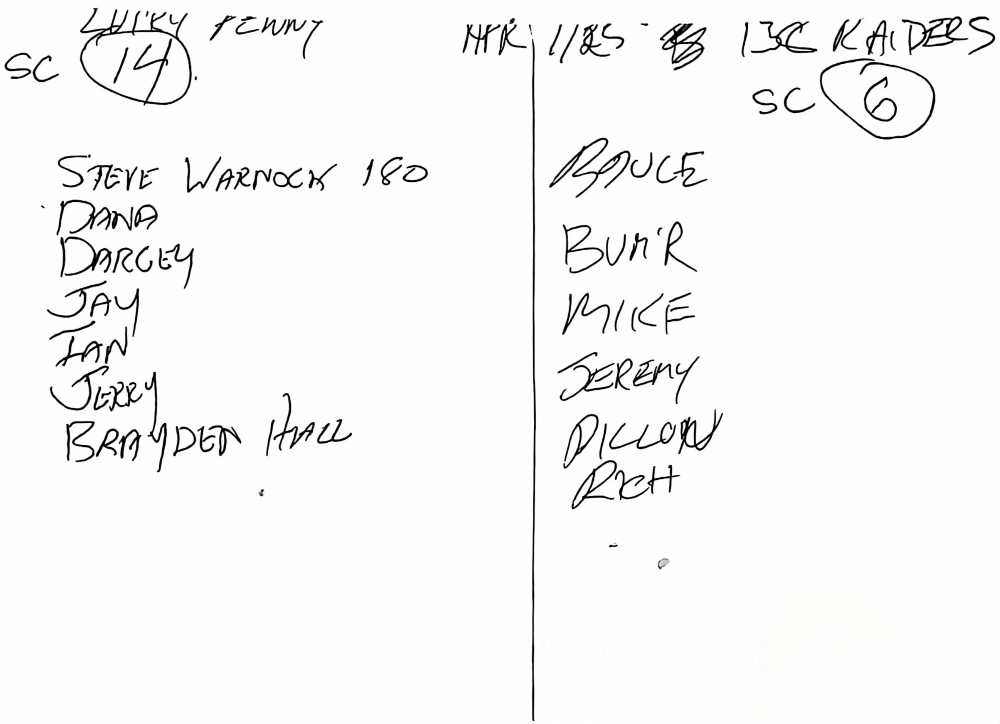 LUCKY PENNY
SC 14
STEVE WARNOCK 180
DANA
DARCEY
JAY
IAN
JERRY
BRAYDEN HALL
1/25 RAIDERS
SC 6
MIKE
JEREMY
DILLON
RICH